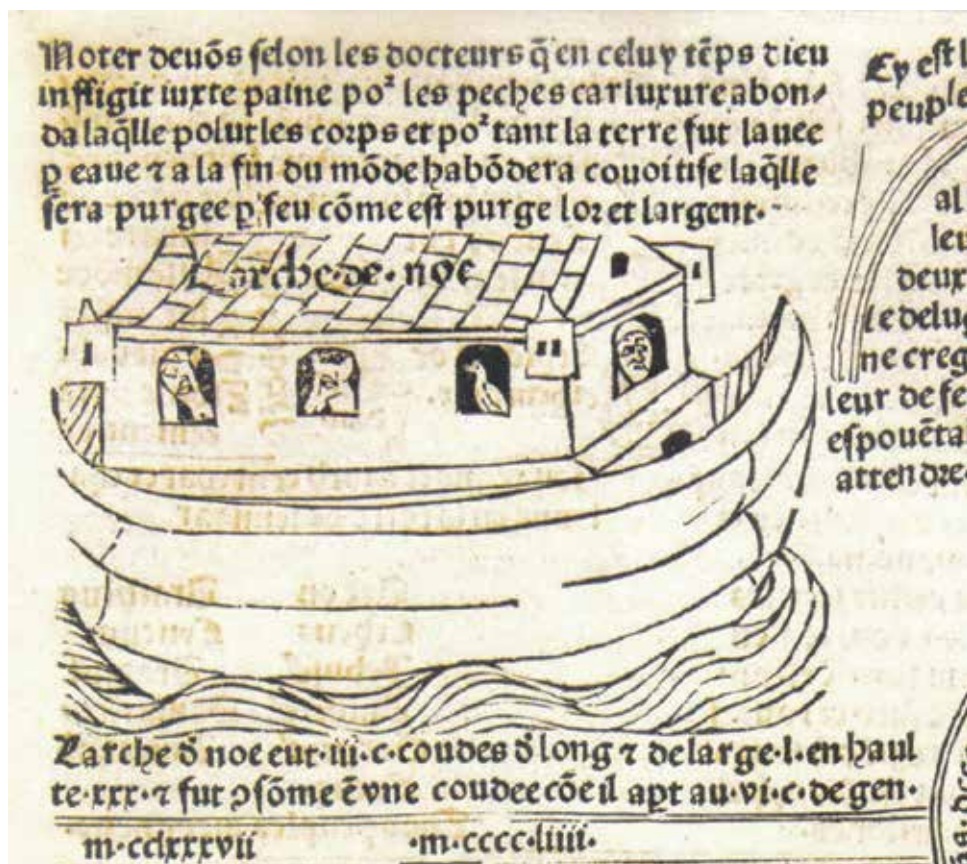 Noter deuōs selon les docteurs q̄ en celuy tēps dieu
infligit iuxte paine poꝰ les peches car luxure abon⸗
da laq̄lle polut les corps et poꝰ tant la terre fut lauee
ꝑ eaue ⁊ a la fin du mōde habōdera couoitise laq̄lle
sera purgee ꝑ feu cōme est purge lor et largent.
Larche·de·noe
Larche d̄ noe eut·iii·c·coudes d̄ long ⁊ de large·l·en haul
te·xxx·⁊ fut ꝯsōme ē vne coudee cōe il apt au·vi·c·de gen·
m·cclxxxvii
·m·cccc·liiii·
Cy est l
peuple
al
leu
deux
le delug
ne creg
leur de fe
espouēta
attendre·